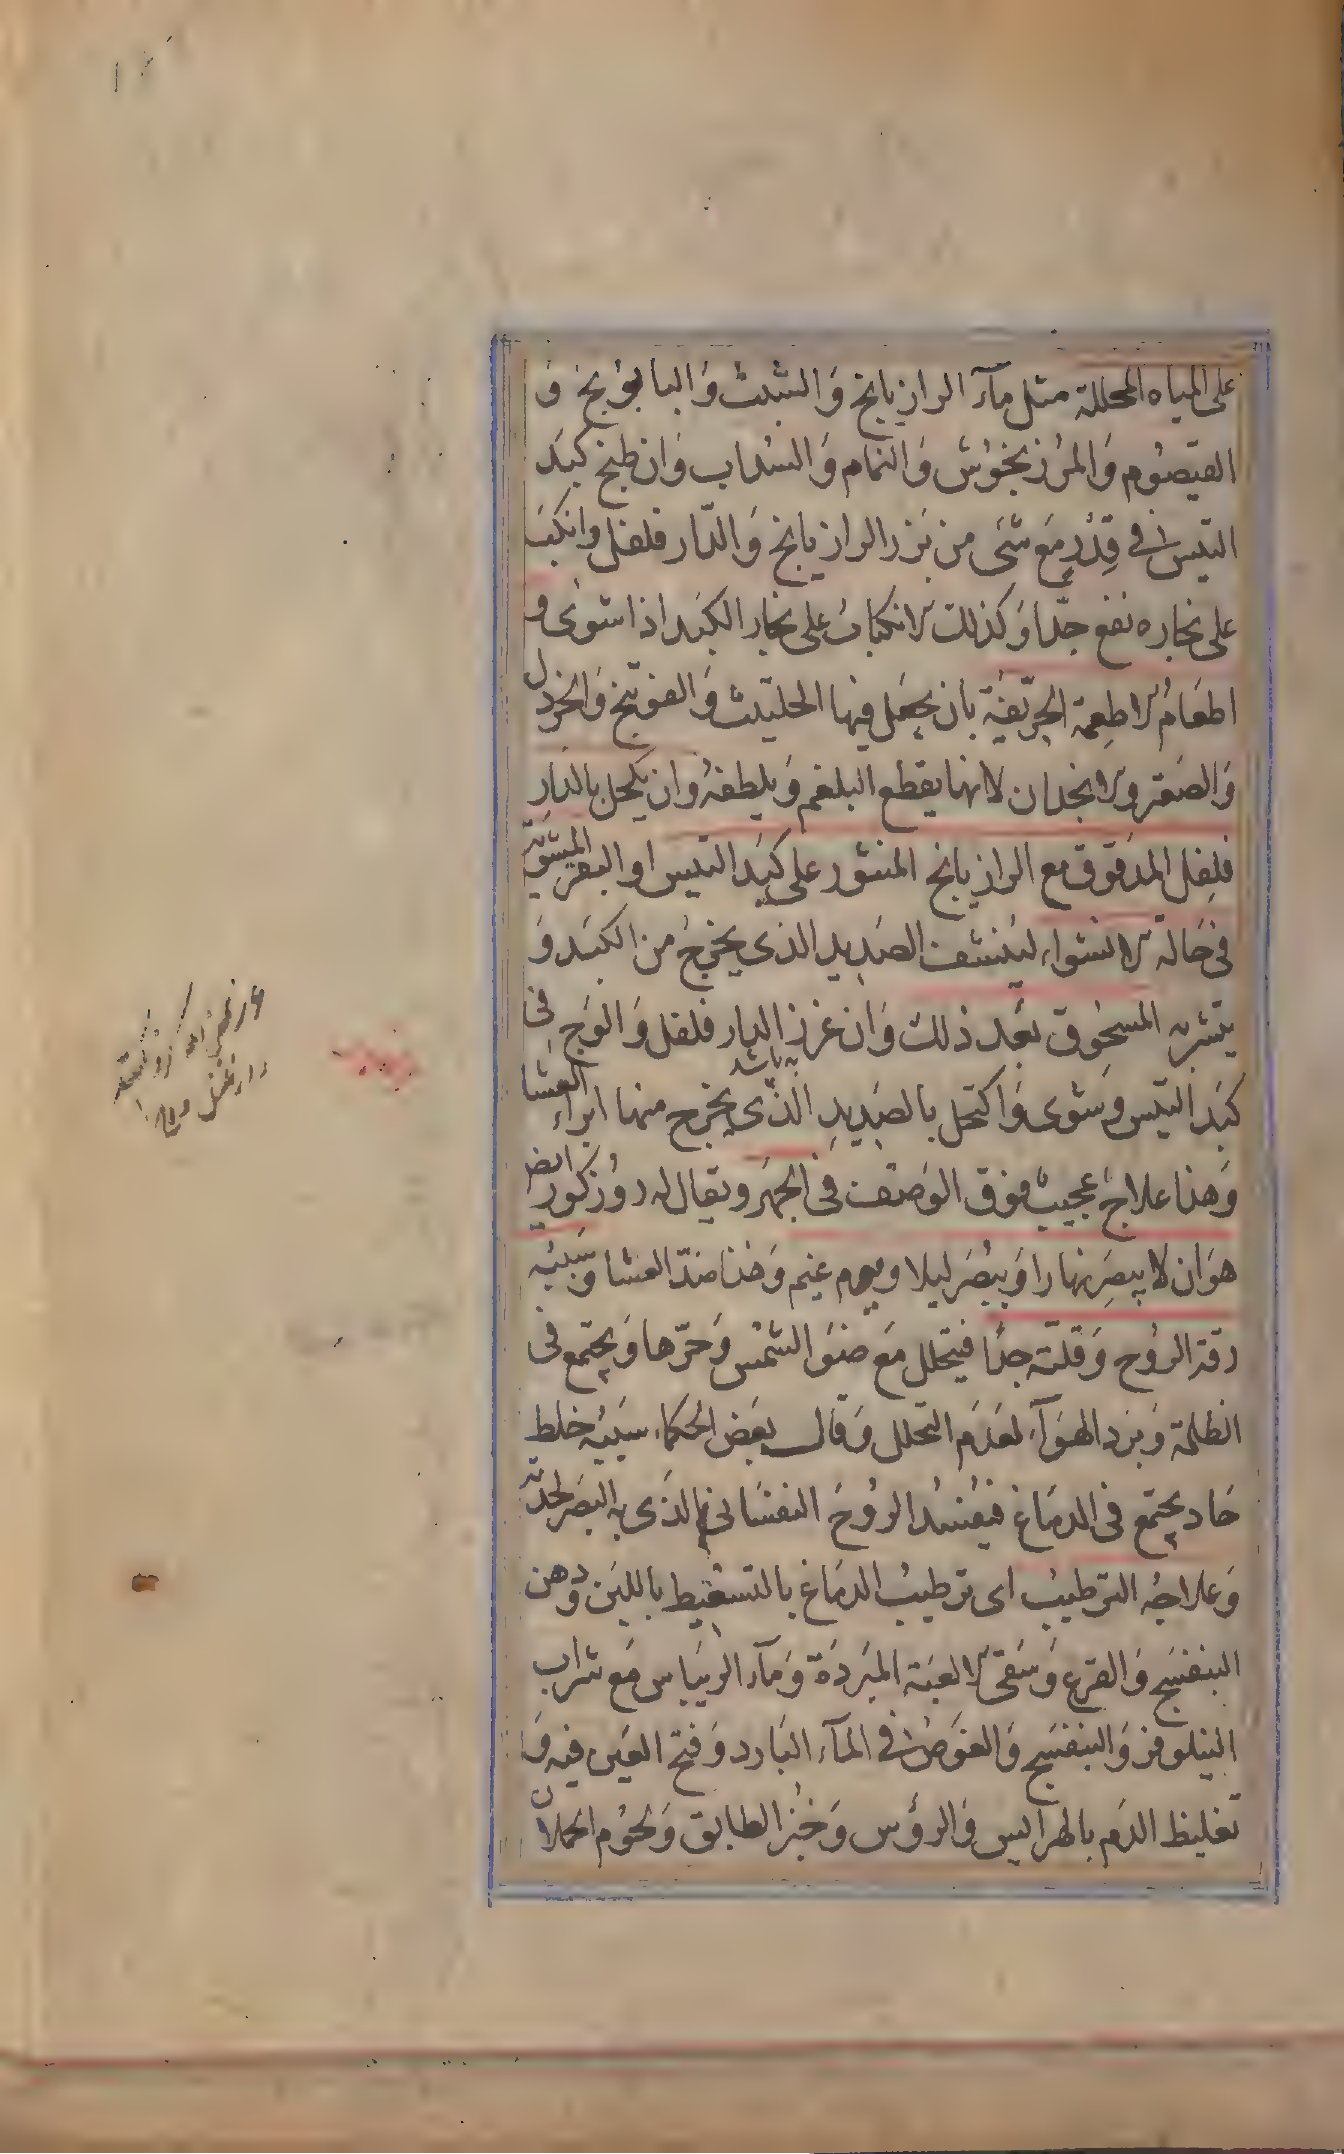 على المياه المحللة مثل مآء الرازيانج وَالشبث وَالبابونج وَ
القيصُوم وَالمرُزنجوُش وَالنمام وَالسُداب وَان طبخ كبَد
التيس فى قِدرٍ مَع شئ من بَزر الرازيانج وَالدّار فلفل وانكبَ
على بخاره نفع جدّا وَكذلك الانكبابُ على بخار الكبَد اذا شوى و
اطعَامُ الاطعِمة الحِرّيفيَة بان يجعَل فيها الحلتيت وَالفوتنج وَالخردل
وَالصَعتر وَالانجدان لانها يقطع البلغم وَيلطفهُ وَان يكحل بالدار
فلفِل المدقوق مع الرازيانج المنثور على كبَد التيس او البقر المشوّية
فى حَالة الانشواء لينشف الصَديد الذى يخرجُ من الكبَد وَ
ينثر به المسحُوق بَعد ذلك وَان غرز الدار فلفل وَالوَج فى
كبَد التيس وَشوى وَاكتحل بالصَديدِ الذى يخرج منها ابراء العشا
وَهذا علاجُ عجيب فوق الوَصْف فى الجَهَر وَيقال له روُزكور ايضا
هوَ ان لا يبصِر نهارا وَيبُصَر ليلا وَيوم غيم وَهذا ضدّ العشا وَسَببُه
رقة الروُح وَقلّته جدّا فيتحلل مَع ضوَ الشمْس وَحرّها وَيجتمع فى
الظلمة وَبَرد الهوَآء لعَدَم التحلل وَقال بعَض الحكماء سَببُه خلط
حَاد يجتمع فى الدمَاغ فيفُسُد الروُحَ النفسَانى الذى به البَصَر لحدّته
وَعلاجُه الترطيبُ اى ترطيبُ الدمَاغ بالتسعْيط باللبَن وَدهن
البنفسَج وَالقرع وَسَقى الالعبَة المبَردَة وَمآء الريبَاس مَع شراب
النيلوفر وَالبنفسَج وَالغوَص فى المآء البَارد وَفتح العَين فيه وَ
تغليظ الدَم بالهرايس وَالرؤُس وَخبُز الطابق وَلحوُم الحملان